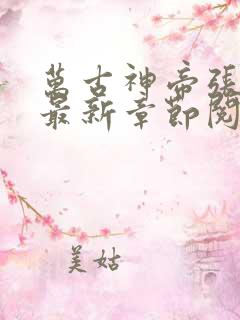 萬古神帝張
最新章節閱
美姑